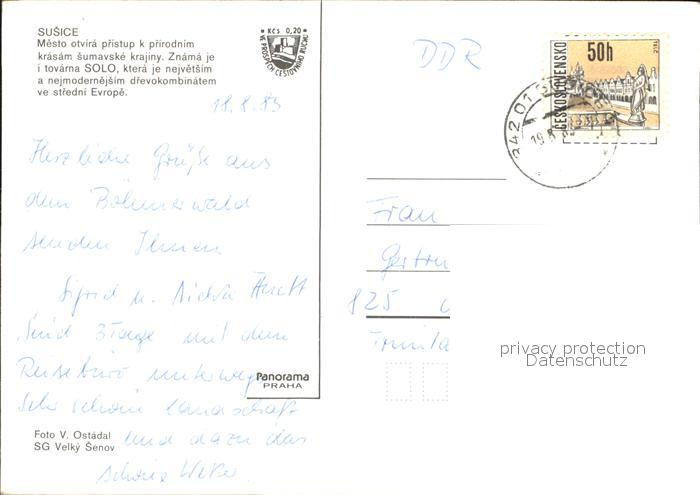 SUŠICE
Město otvírá přístup k přírodním
krásám šumavské krajiny. Známá je
i továrna SOLO, která je největším
a nejmodernějším dřevokombinátem
ve střední Evropě.
Kčs 0,20
VE PROSPĚCH CESTOVNÍHO RUCHU
18.8.83
Herzliche Grüße aus
dem Böhmerwald
senden Ihnen
Sigrid u.
Sind 3 Tage mit dem
Reisebüro unterwegs
Sehr schöne Landschaft
und dazu das
schöne Wetter
Panorama
PRAHA
Foto V. Ostádal
SG Velký Šenov
DDR
ČESKOSLOVENSKO
50h
TELČ
342 01
Frau
825
privacy protection
Datenschutz